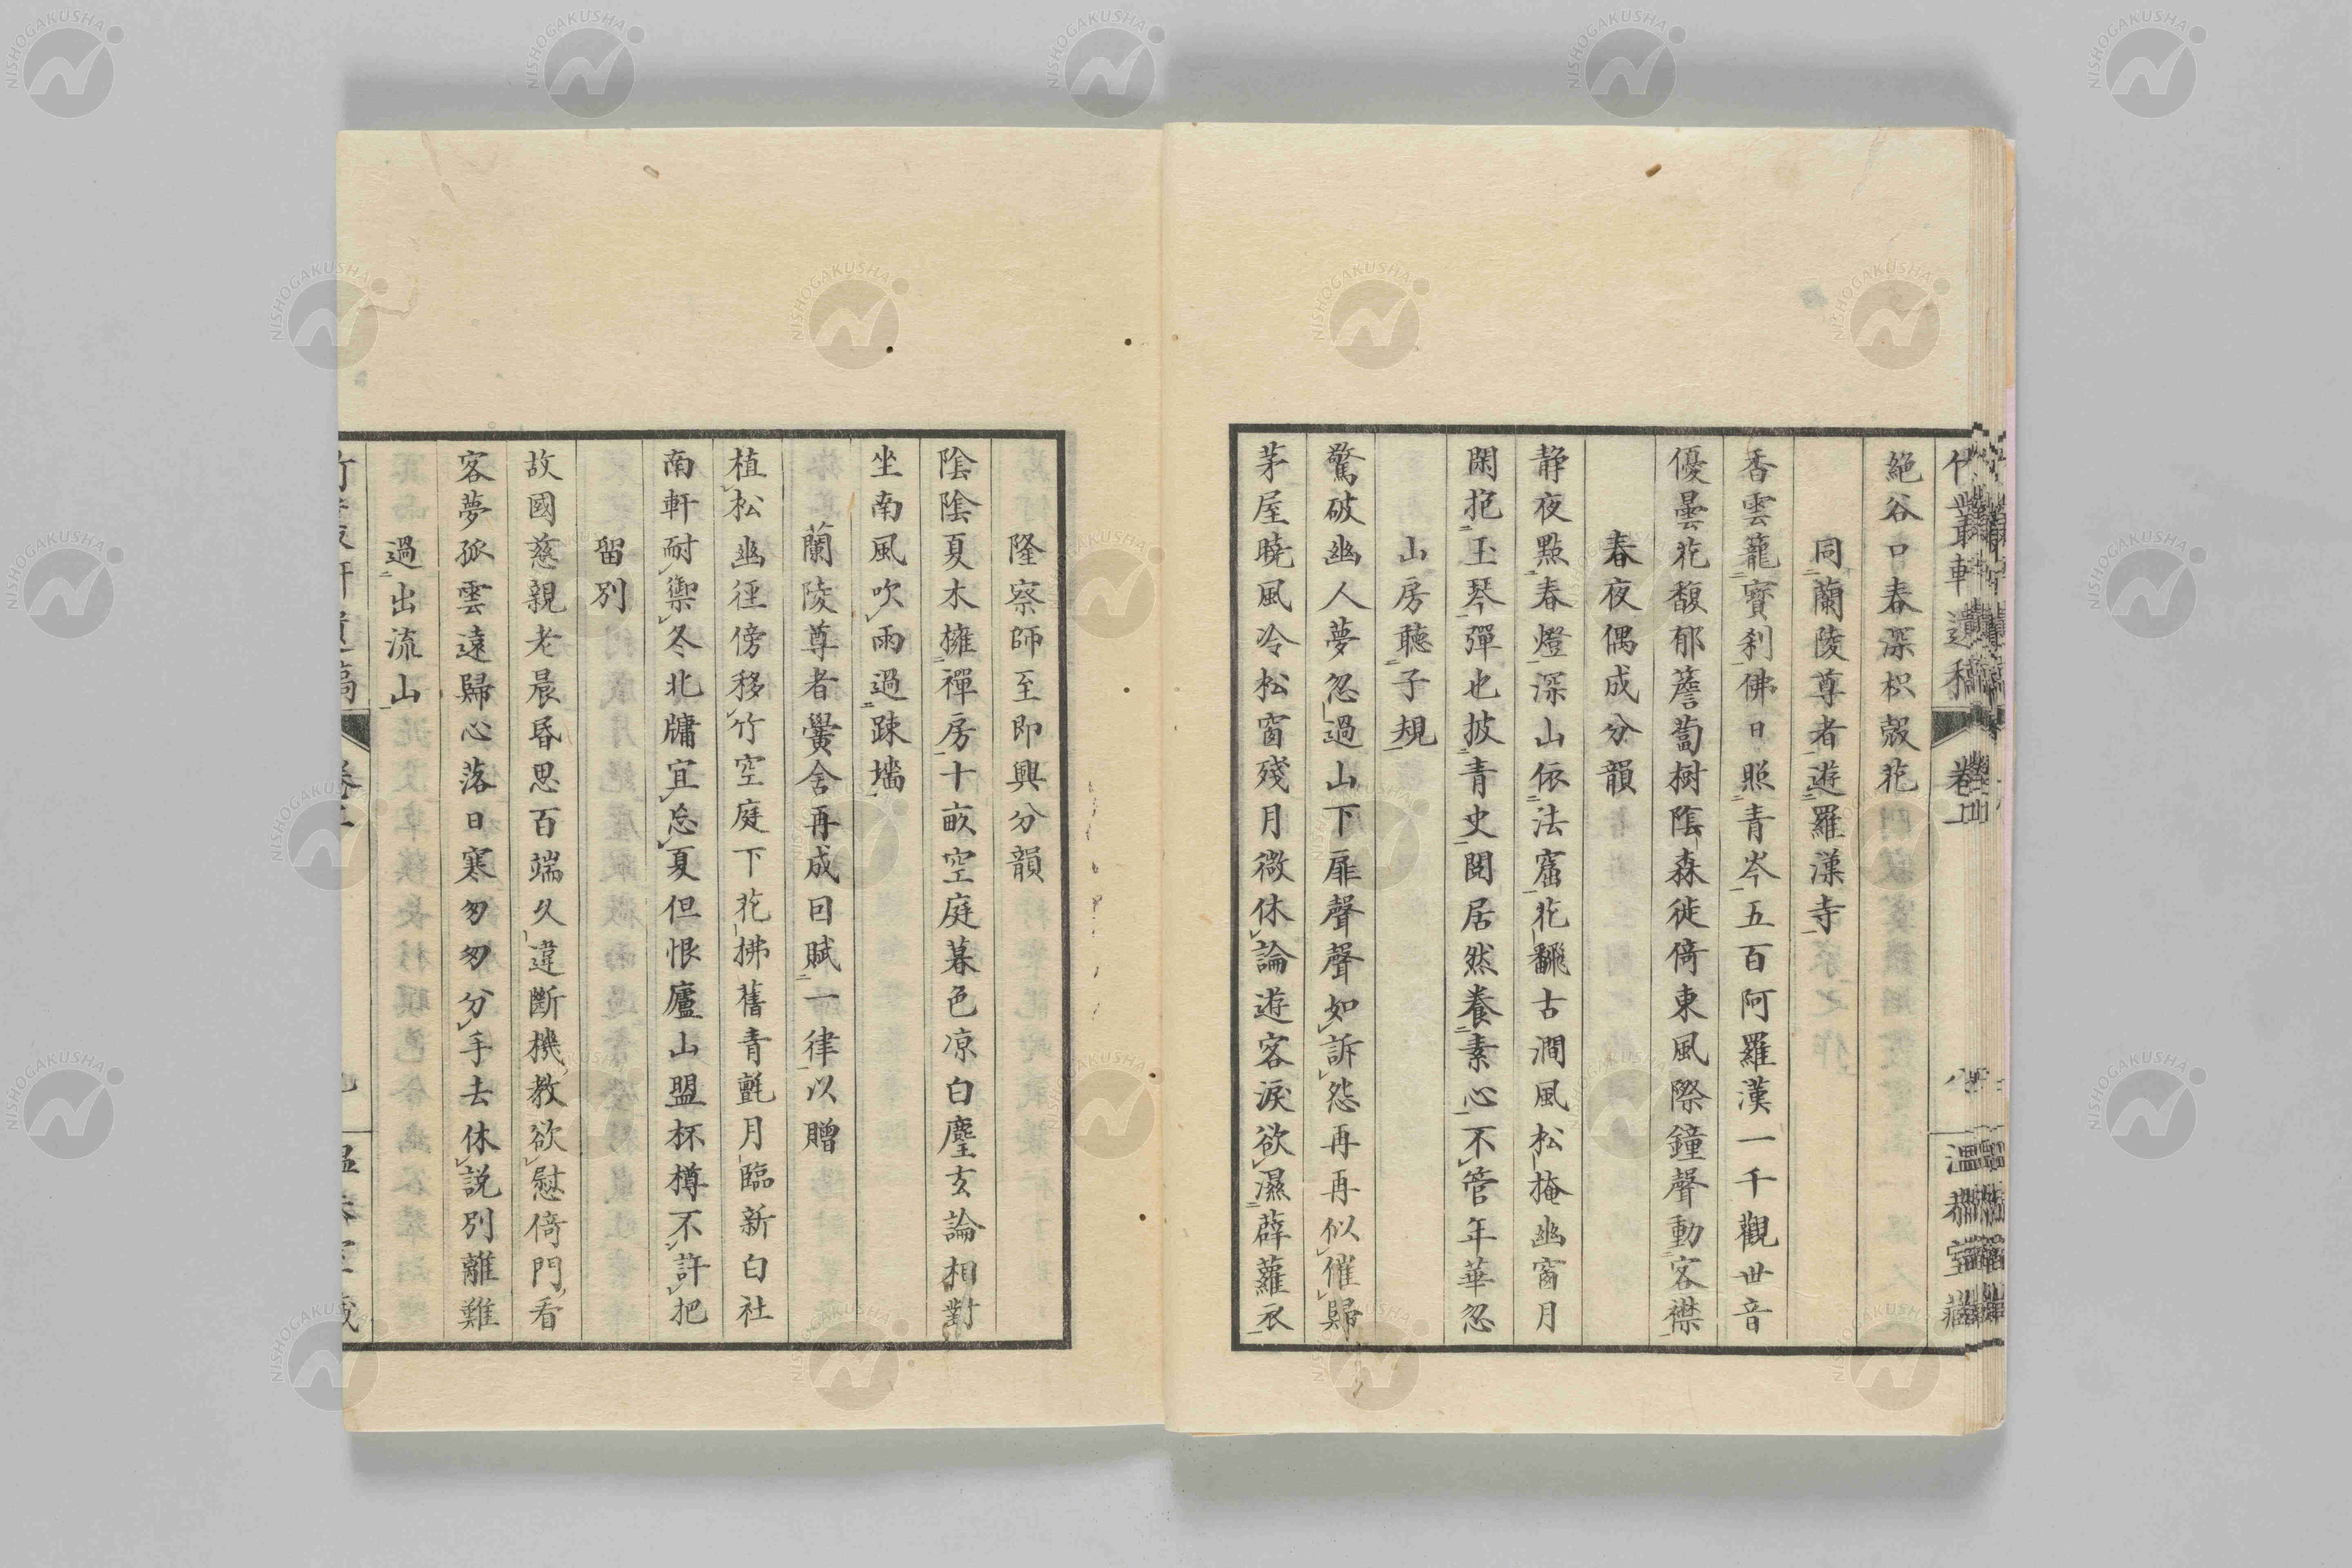 絶谷口春深枳殻花
同蘭陵尊者遊羅漢寺
香雲籠寳刹佛日照青岑五百阿羅漢一千觀世音
優曇花馥郁薝蔔樹陰森徙倚東風際鐘聲動客襟
春夜偶成分韻
静夜點春燈深山依法窟花飜古澗風松掩幽窗月
閑抱玉琴彈也披青史閲居然養素心不管年華忽
山房聴子規
驚破幽人夢忽過山下扉聲聲如訴怨再再似催歸
茅屋曉風冷松窗殘月微休論遊客淚欲濕薜蘿衣
隆察師至即興分韻
陰陰夏木擁禪房十畝空庭暮色凉白麈玄論相對
坐南風吹雨過疎墻
蘭陵尊者黌舍再成因賦一律以贈
植松幽徑傍移竹空庭下花拂舊青氈月臨新白社
南軒耐禦冬北牖宜忘夏但恨廬山盟杯樽不許把
留別
故國慈親老晨昏思百端久違斷機教欲慰倚門看
客夢孤雲遠歸心落日寒匆匆分手去休説別離難
過出流山
NISHOGAKUSHA